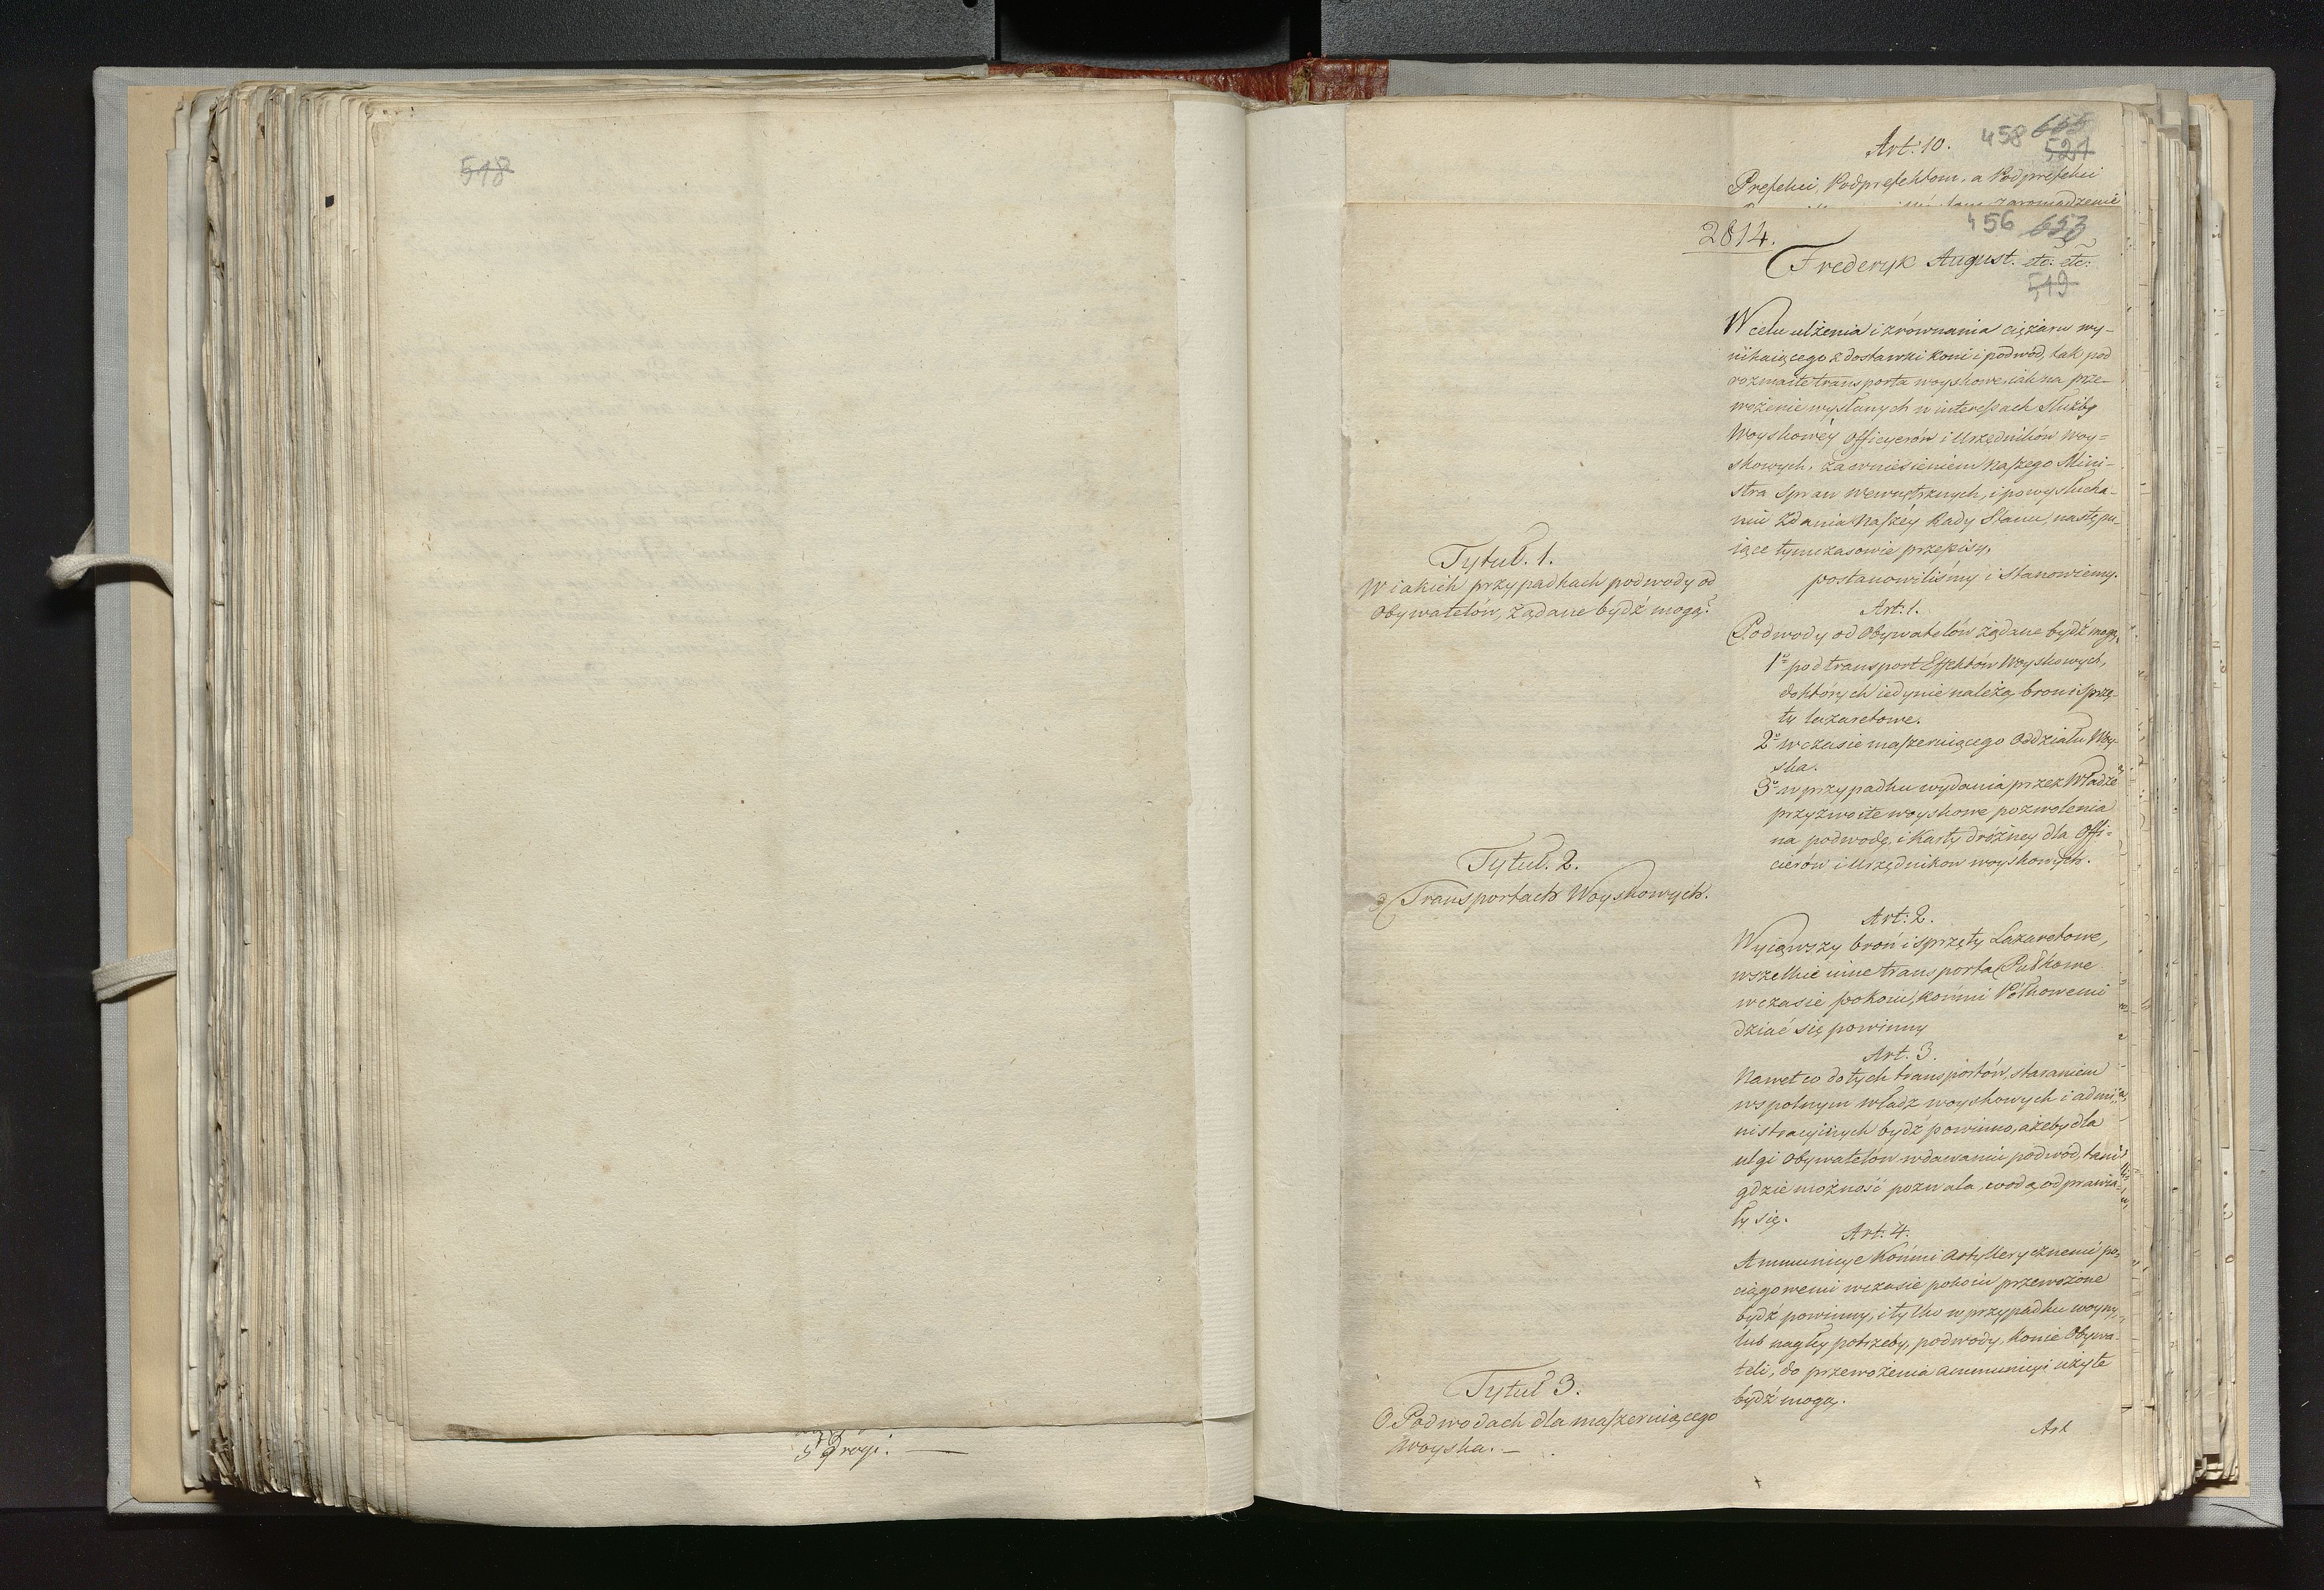 518
5 Drogi. —
Art: 10.
458 655
521
Prefekci, Podprefektom, a Podprefekci
zgromadzenie
2814.
456 653
Frederyk August. etc: etc:
519
W celu ulżenia i zrównania ciężaru wy-
nikaiącego z dostawki koni i podwód, tak pod
rozmaite transporta woyskowe, iak na prze-
wożenie wysłanych w interessach służby
Woyskowéy Officyerów i Urzędników Woy=
skowych, za wniesieniem Naszego Mini-
stra Spraw Wewnętrznych, i po wysłucha-
niu Zdania Naszéy Rady Stanu, następu-
iące tymczasowie przepisy,
postanowiliśmy i Stanowiemy.
Tytuł. 1.
W iakich przypadkach podwody od
Obywatelów, żądane bydź mogą?
Art: 1.
Podwody od Obywatelów żądane bydź mogą,
1o pod transport Effektów Woyskowych,
do których iedynie należą, broń i sprzę-
ty lazaretowe.
2o w czasie maszeruiącego Oddziału Woy-
ska.
3o w przypadku wydania przez Władze
przyzwoite woyskowe pozwolenia
na podwodę, i Karty dróżney dla Offi=
cierów i Urzędnikow woyskowych.
Tytuł. 2.
O Transportach Woyskowych.
Art: 2.
Wyiąwszy broń i sprzęty Lazaretowe,
wszelkie inne transporta Pułkowe
w czasie pokoiu, końmi Półkowemi
dziać się powinny
Art. 3.
Nawet co do tych transportów, staraniem
wspolnym władz woyskowych i admi-
nistracyinych bydź powinno, ażeby dla
ulgi Obywatelów w dawaniu podwód, tam
gdzie możność pozwala, wodą odprawia-
ły się.
Art: 4.
Ammunicye Końmi Artylleryczнemi po-
ciągowemi w czasie pokoiu przewożone
bydź powinny, i tylko w przypadku woyny,
lub nagłey potrzeby, podwody, konie Obywa-
teli, do przewożenia ammunicyi użyte
bydź mogą.
Tytuł 3.
O Podwodach dla maszeruiącego
Woyska. —
Art